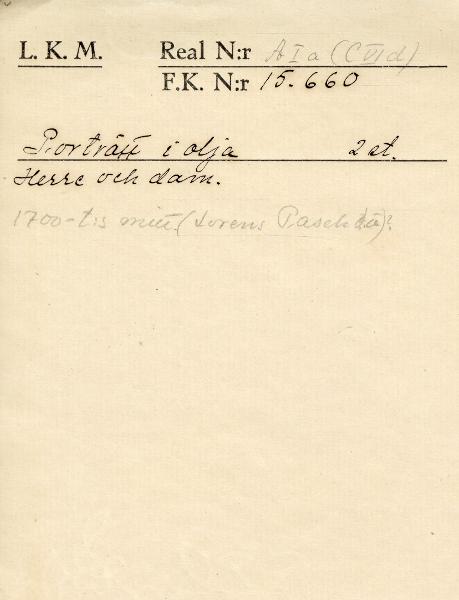 L. K. M. Real N:r A I a (C VI d)
F.K. N:r 15.660
Porträtt i olja 2 st.
Herre och dam.
1700-t:s mitt (Lorens Pasch d.ä)?